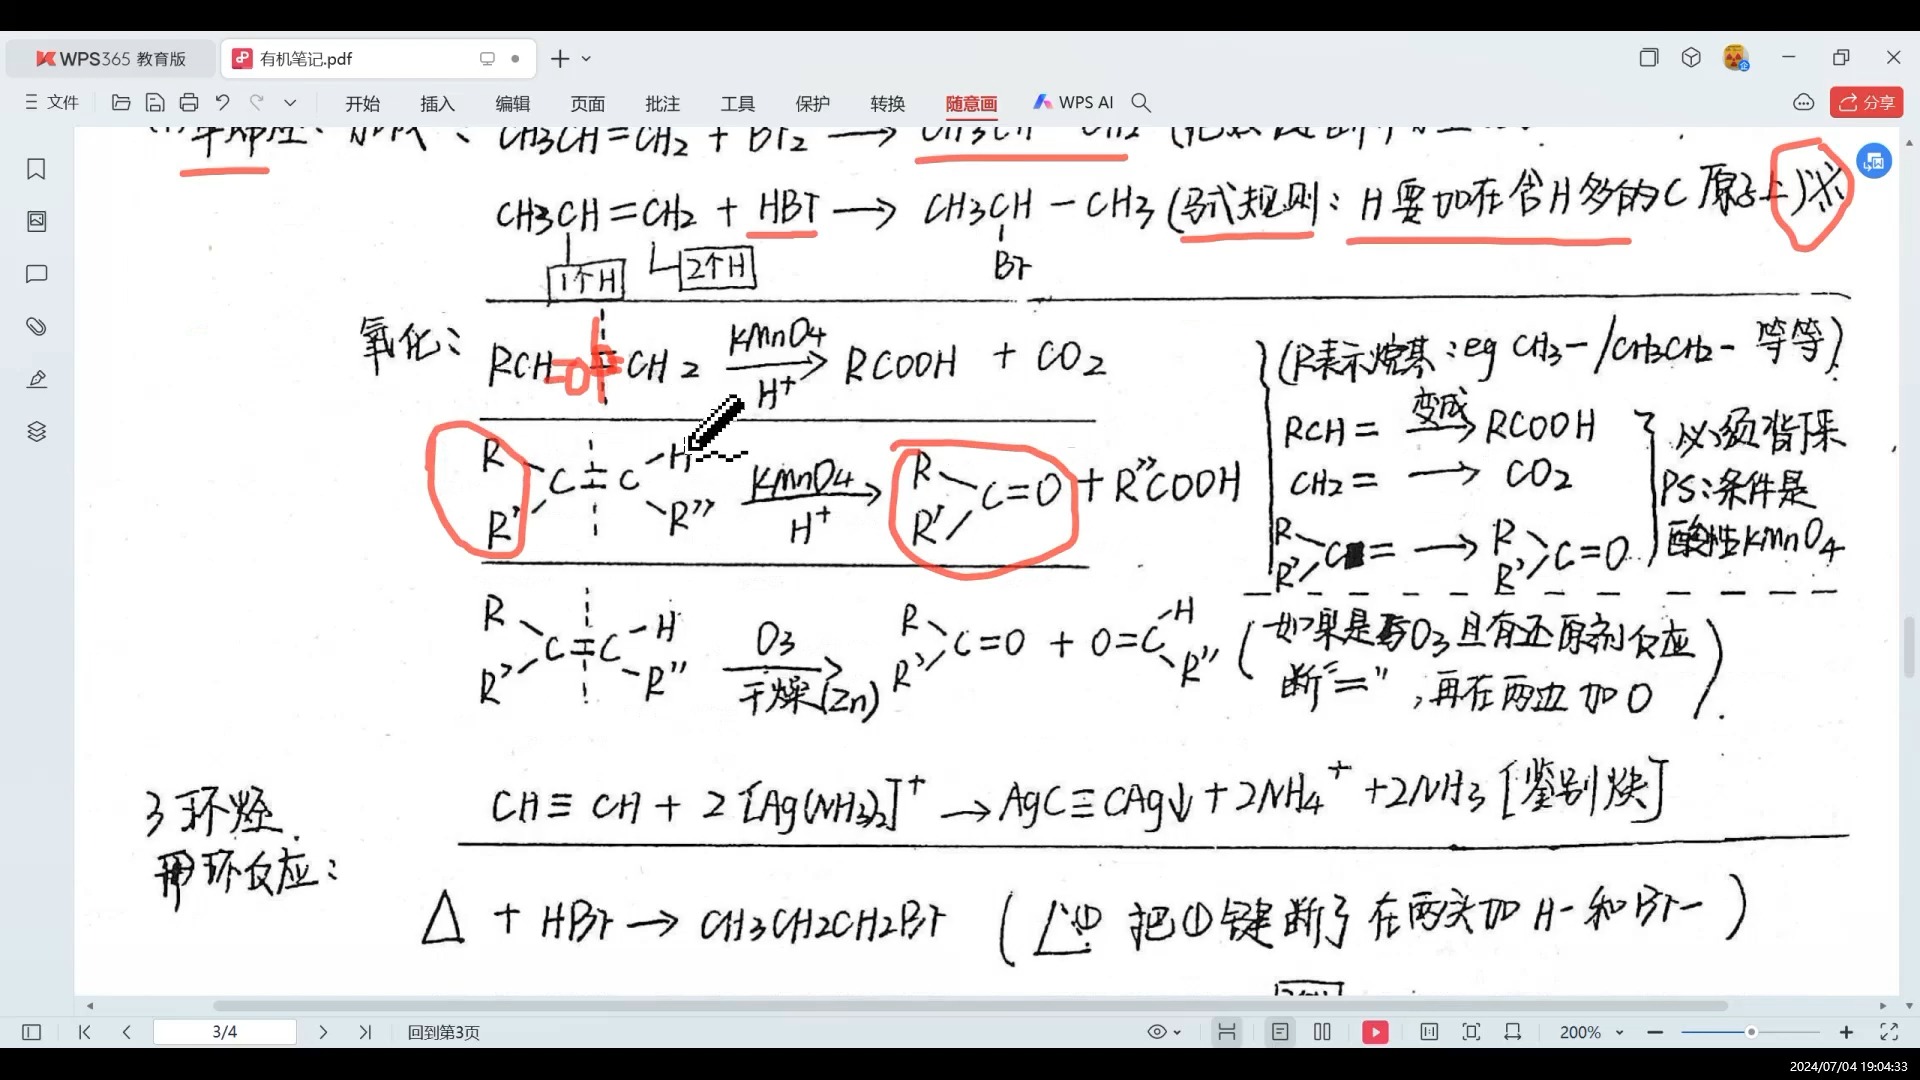 WPS365 教育版
有机笔记.pdf
文件 开始 插入 编辑 页面 批注 工具 保护 转换 随意画 WPS AI 分享
CH3CH=CH2 + Br2 → CH3CH-CH2
CH3CH=CH2 + HBr → CH3CH-CH3 (马式规则: H要加在含H多的C原子上)※
Br
1个H 2个H
氧化:
RCH=CH2 KMnO4 H+ → RCOOH + CO2
(R表示烷基:eg CH3-/CH3CH2- 等等)
RCH= 变成→ RCOOH
CH2= → CO2
R R' C= → R R' C=O
必须背下来
PS:条件是
酸性KMnO4
R R' C=C H R'' KMnO4 H+ → R R' C=O + R''COOH
R R' C=C H R'' O3 干燥(Zn) → R R' C=O + O=C H R''
(如果是与O3且有还原剂反应
断"=",再在两边加O).
CH≡CH + 2[Ag(NH3)2]+ → AgC≡CAg↓ + 2NH4+ + 2NH3 [鉴别炔]
3环烃.
开环反应:
△ + HBr → CH3CH2CH2Br (△① 把①键断了在两头加H-和Br-)
3/4
回到第3页
200%
2024/07/04 19:04:33